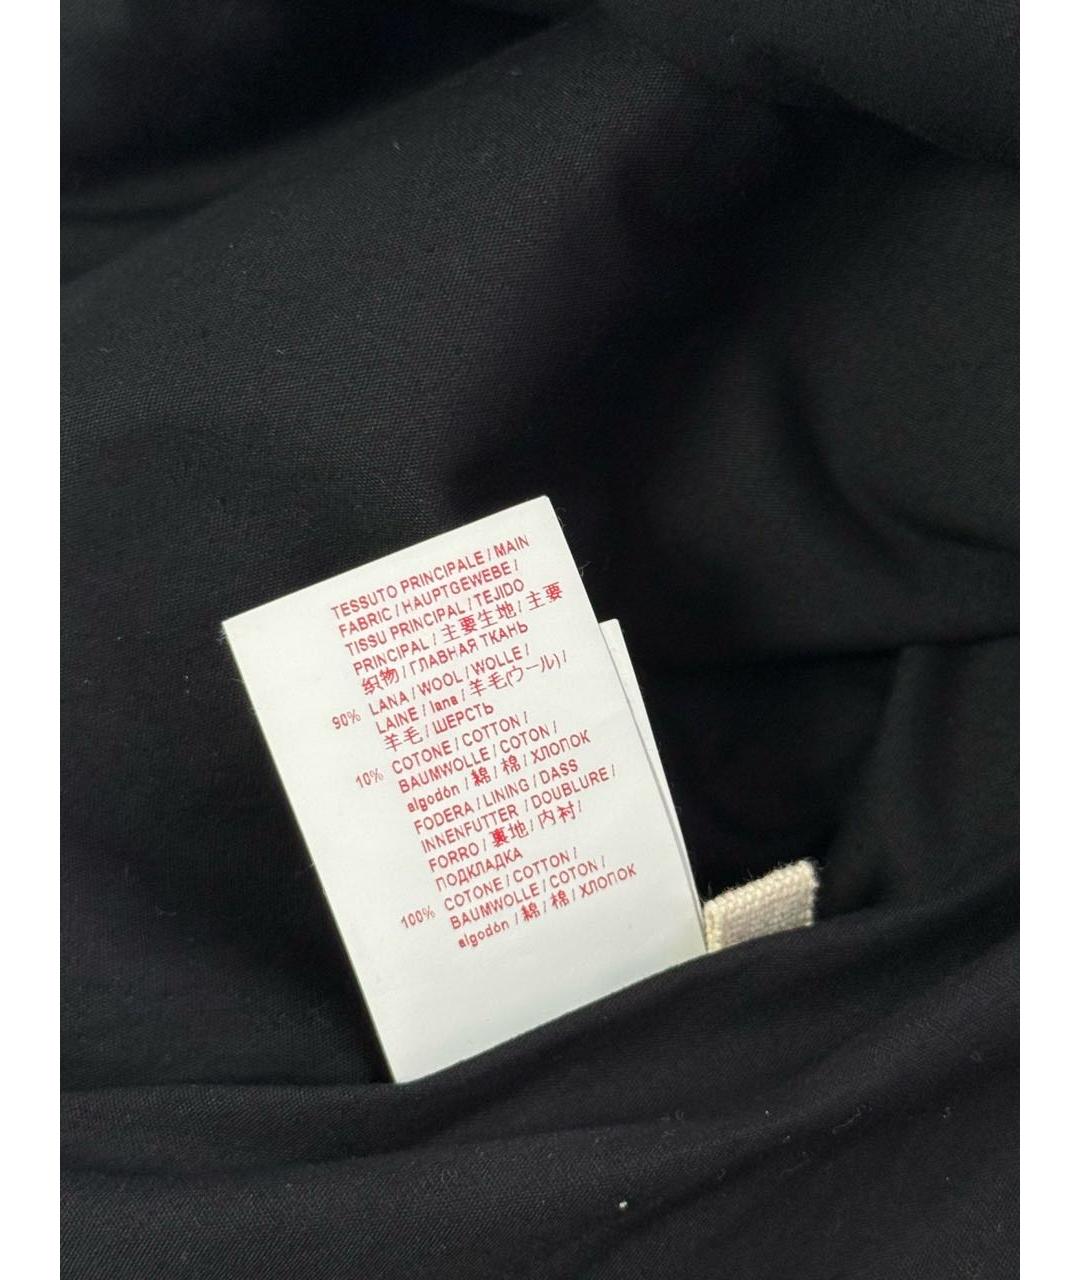 TESSUTO PRINCIPALE / MAIN
FABRIC / HAUPTGEWEBE /
TISSU PRINCIPAL / TEJIDO
PRINCIPAL / 主要生地 / 主要
织物 / ГЛАВНАЯ ТКАНЬ
90% LANA / WOOL / WOLLE /
LAINE / lana / 羊毛(ウール) /
羊毛 / ШЕРСТЬ
10% COTONE / COTTON /
BAUMWOLLE / COTON /
algodón / 綿 / 棉 / ХЛОПОК
FODERA / LINING / DASS
INNENFUTTER / DOUBLURE /
FORRO / 裏地 / 内衬 /
ПОДКЛАДКА
100% COTONE / COTTON /
BAUMWOLLE / COTON /
algodón / 綿 / 棉 / ХЛОПОК